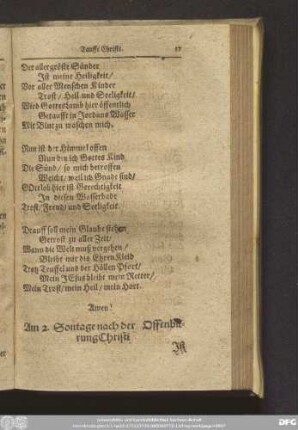 Tauffe Christi.
Der allergröste Sünder
Ist meine Heiligkeit/
Vor aller Menschen Kinder
Trost/ Heil und Seeligkeit/
Wird Gotteslamb hier öffentlich
Getaufft in Jordans Wasser
Mit Blut zu waschen mich.
Nun ist der Himmel offen
Nun bin ich Gottes Kind
Die Sünd/ so mich betroffen
Weicht/ weil ich Gnade find/
hier ist Gerechtigkeit
In diesem Wasserbade
Trost/ Freud/ und Seeligkeit
Drauff soll mein Glaube stehen
Getrost zu aller Zeit/
Wann die Welt muß vergehen/
Bleibt mir diß Ehren Kleid
Trotz Teuffel und der Höllen Pfort/
Mein JEsus bleibt mein Retter/
Mein Trost/ mein Heil/ mein Hort.
Amen!
Am 2. Sontage nach der Offenba-
rung Christi